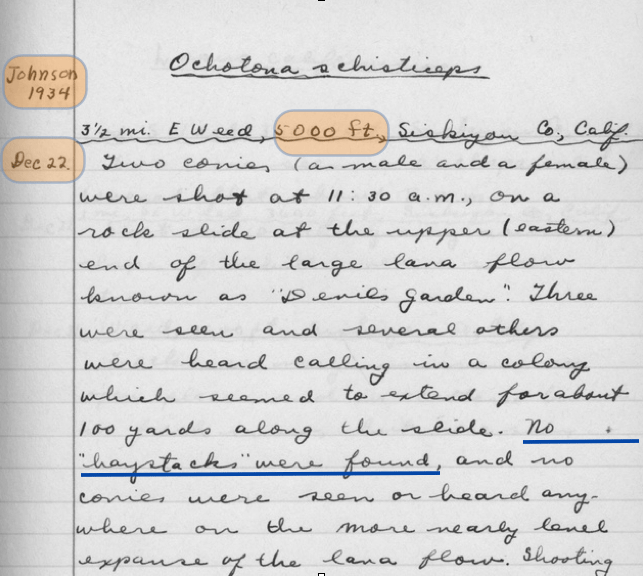 Ochotona schisticeps
Johnson
1934
3½ mi. E Weed, 5000 ft., Siskiyou Co., Calif.
Dec 22.
Two conies (a male and a female)
were shot at 11:30 a.m., on a
rock slide at the upper (eastern)
end of the large lava flow
known as "Devils Garden". Three
were seen and several others
were heard calling in a colony
which seemed to extend for about
100 yards along the slide. No
"haystacks" were found, and no
conies were seen or heard any-
where on the more nearly level
expanse of the lava flow. Shooting